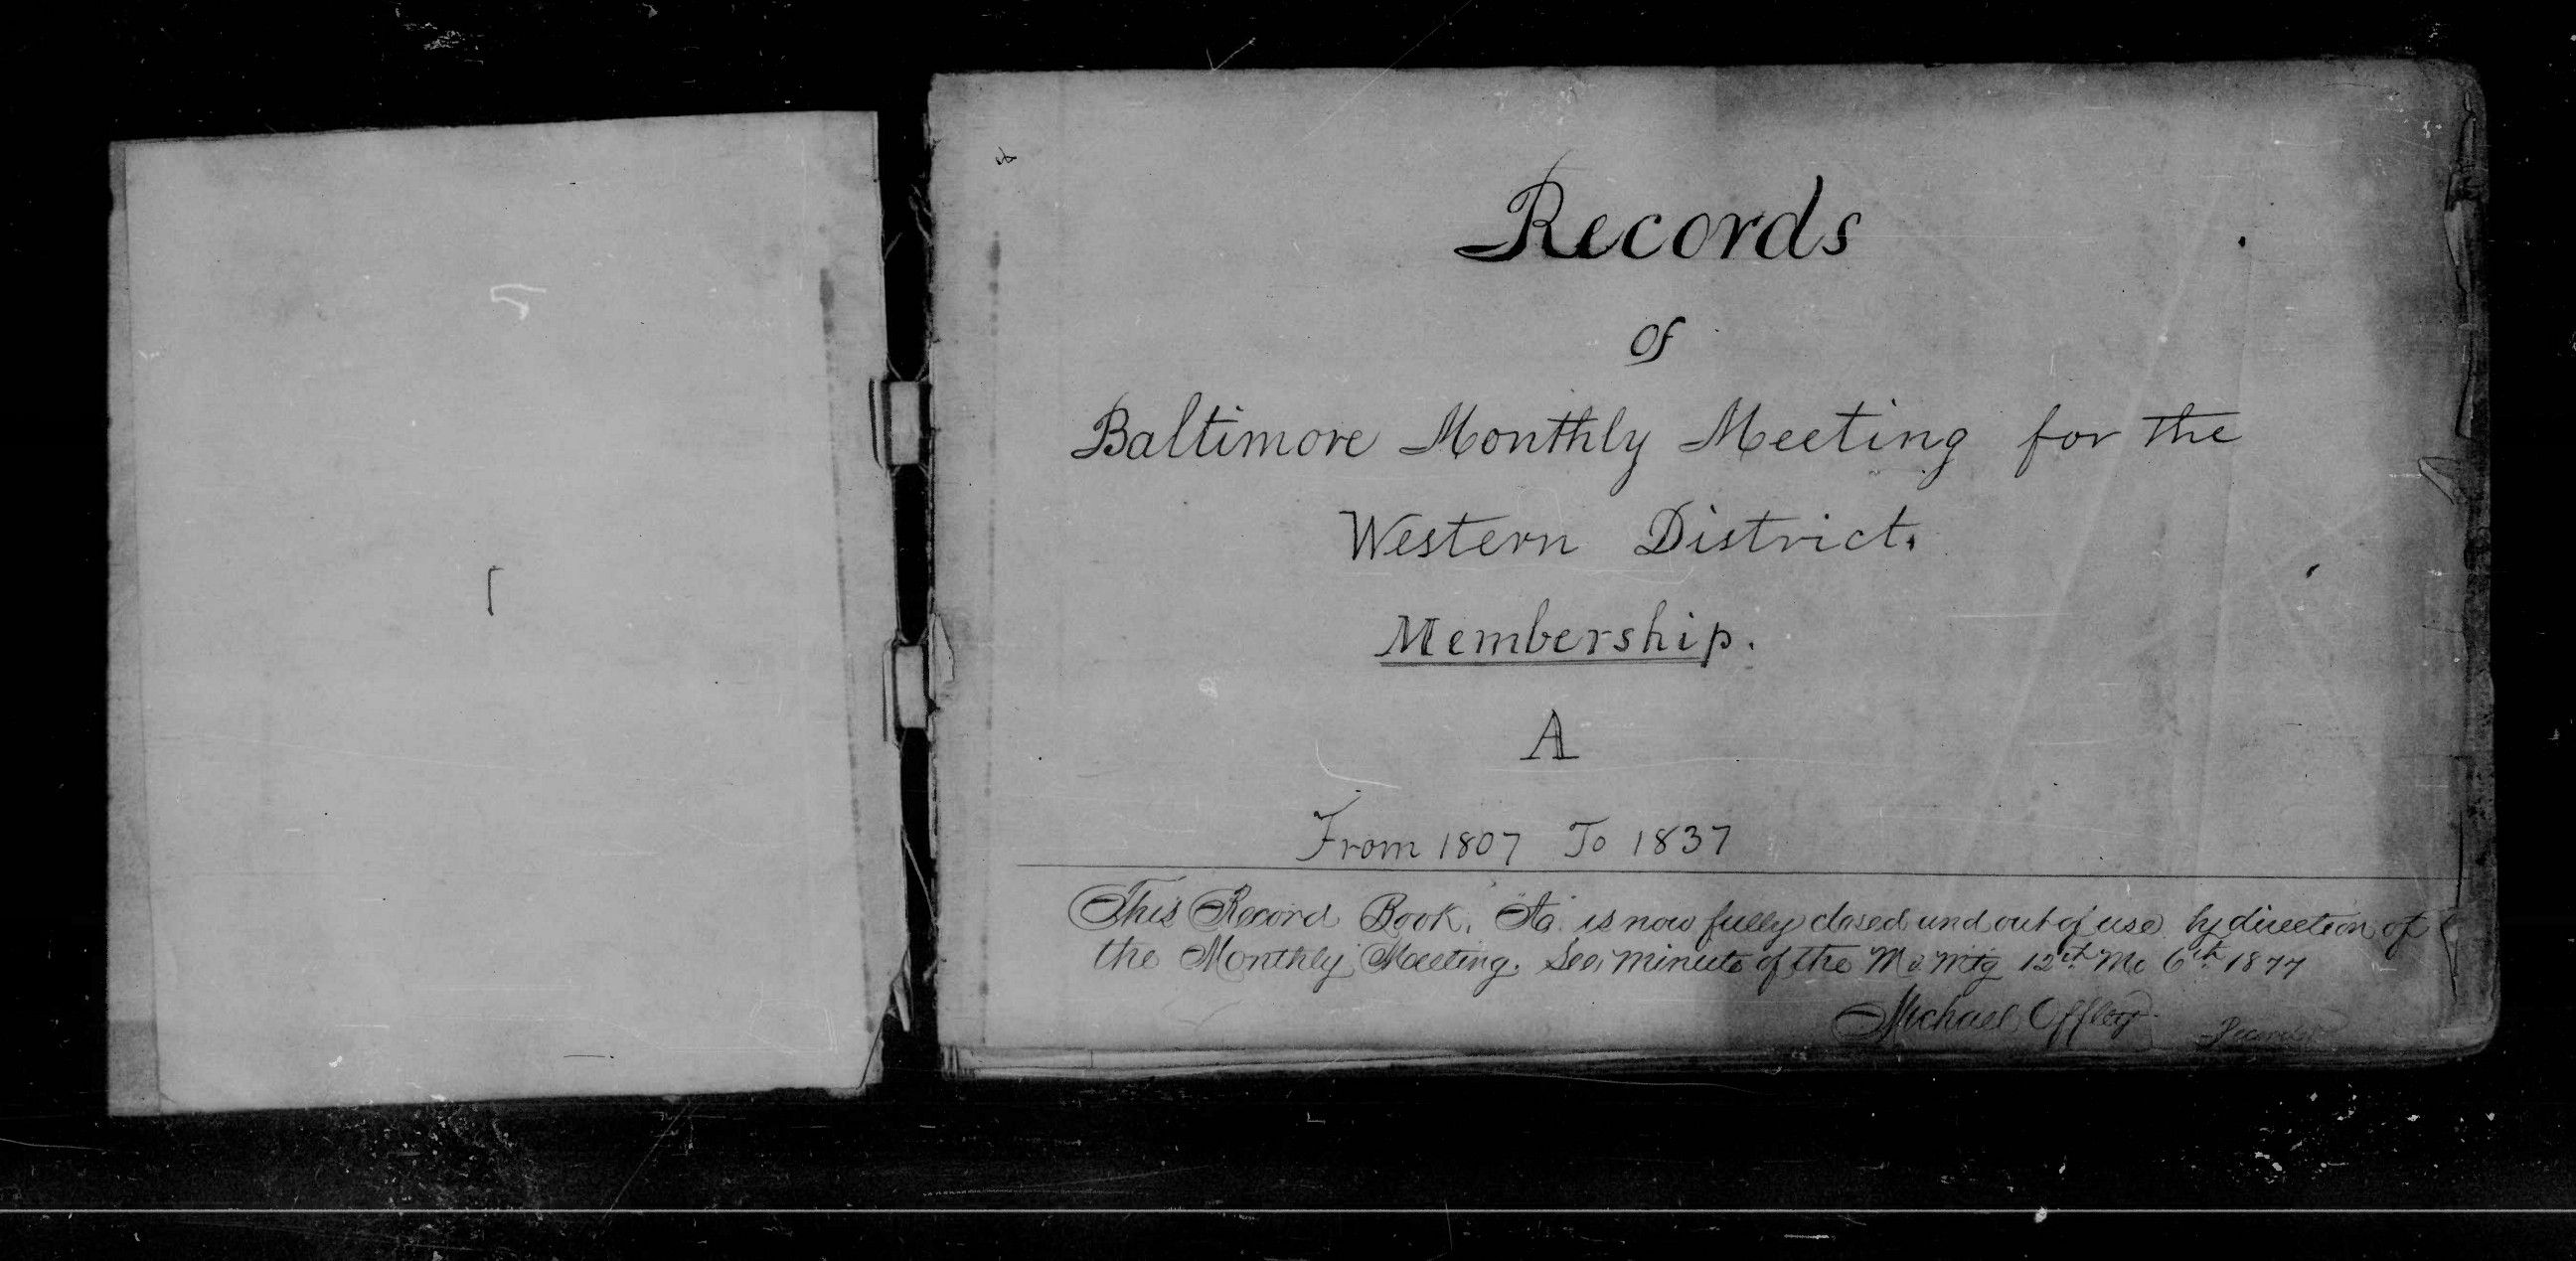 Records
of
Baltimore Monthly Meeting for the
Western District.
Membership.
A
From 1807 To 1837
This Record Book, A. is now fully closed and out of use by direction of
the Monthly Meeting. See minute of the Mo Mtg 12th Mo 6th 1877
Michael Offley